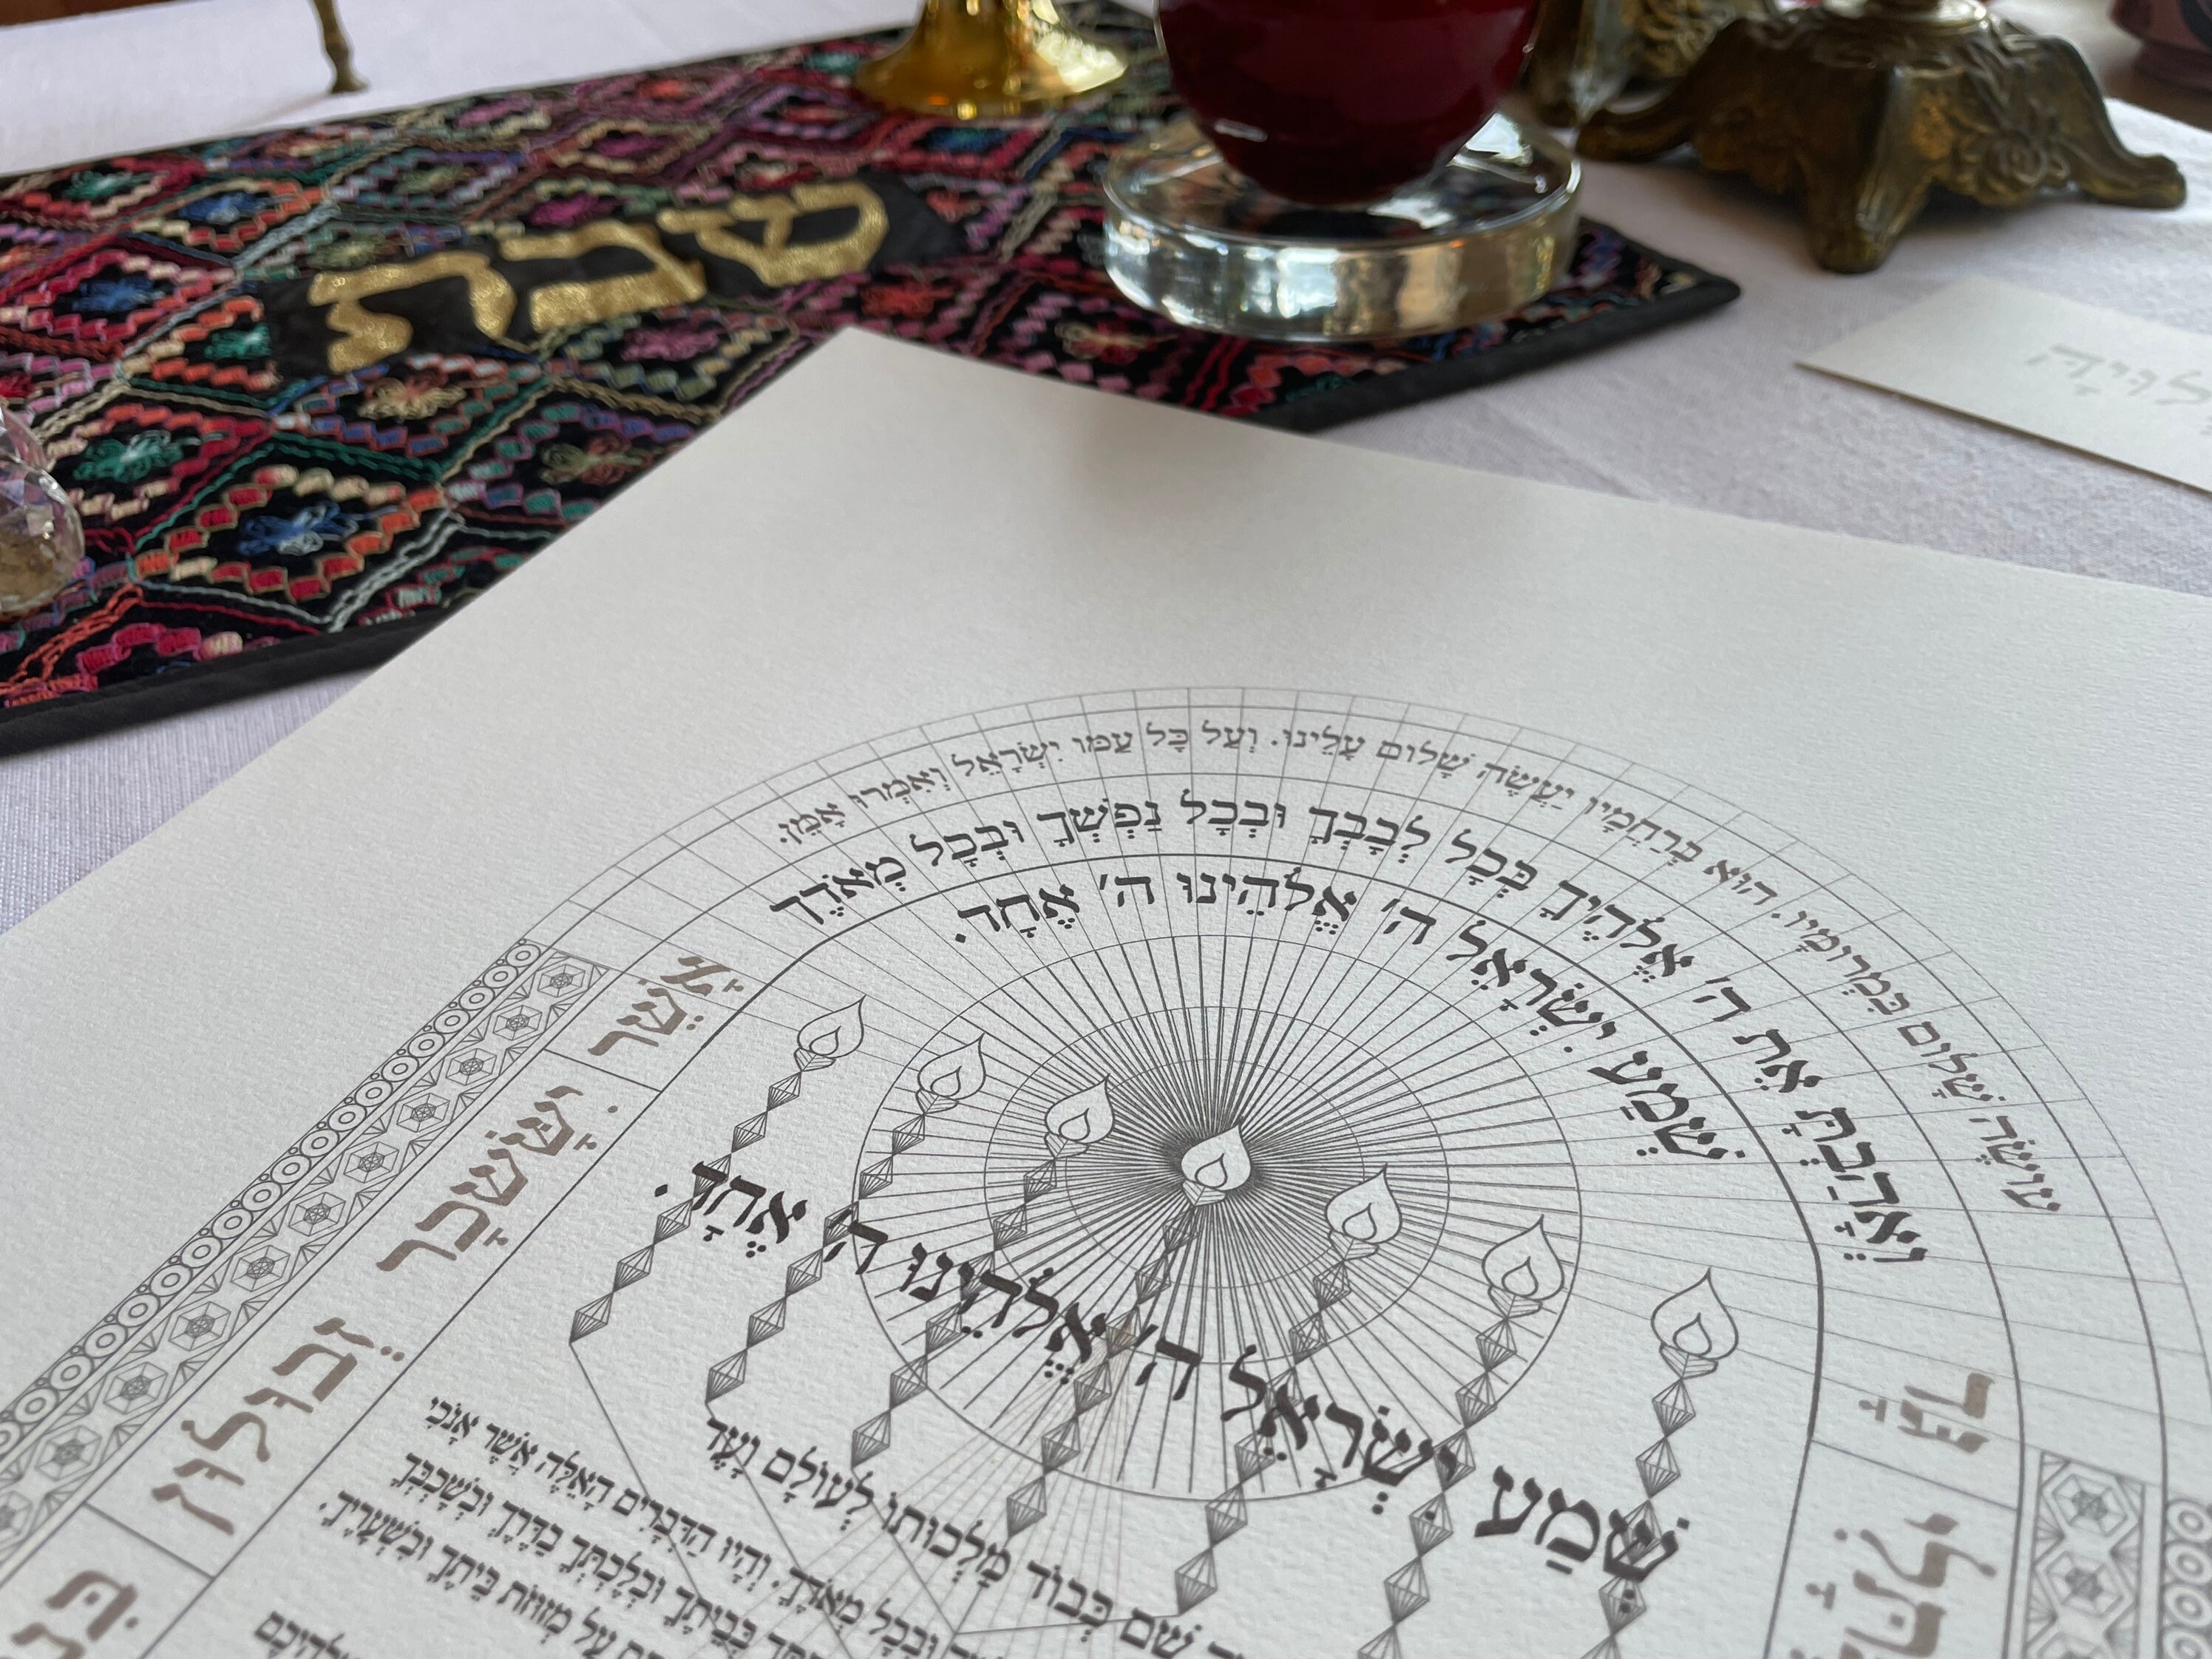 שבת
לויה
עוֹשֶׂה שָׁלוֹם בִּמְרוֹמָיו. הוּא בְּרַחֲמָיו יַעֲשֶׂה שָׁלוֹם עָלֵינוּ. וְעַל כָּל עַמּוֹ יִשְׂרָאֵל וְאִמְרוּ אָמֵן.
וְאָהַבְתָּ אֶת ה' אֱלֹהֶיךָ בְּכָל לְבָבְךָ וּבְכָל נַפְשְׁךָ וּבְכָל מְאֹדֶךָ
שְׁמַע יִשְׂרָאֵל ה' אֱלֹהֵינוּ ה' אֶחָד.
אָשֵׁר
יִשָּׂשכָר
זְבוּלוּן
גָּד
שְׁמַע יִשְׂרָאֵל ה' אֱלֹהֵינוּ ה' אֶחָד.
שֵׁם כְּבוֹד מַלְכוּתוֹ לְעוֹלָם וָעֶד
וּבְכָל מְאֹדֶךָ. וְהָיוּ הַדְּבָרִים הָאֵלֶּה אֲשֶׁר אָנֹכִי
בְּבֵיתֶךָ וּבְלֶכְתְּךָ בַדֶּרֶךְ וּבְשָׁכְבְּךָ
עַל מְזוּזֹת בֵּיתֶךָ וּבִשְׁעָרֶיךָ.